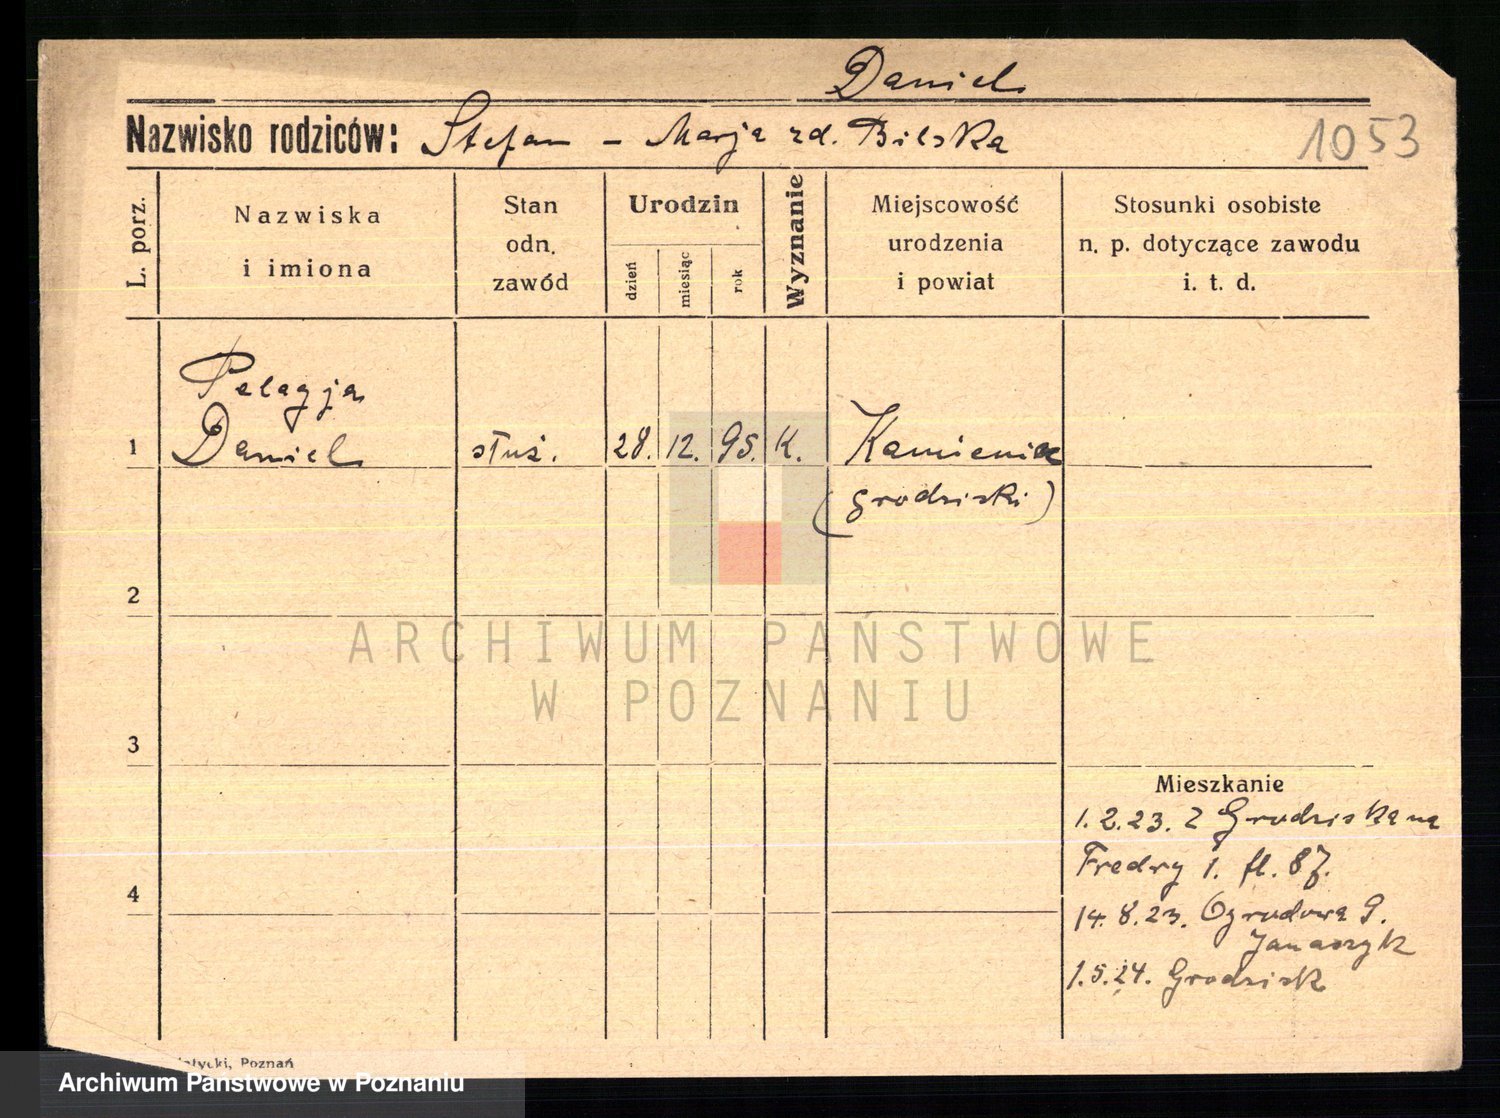 Daniel
Nazwisko rodziców: Stefan - Marja zd. Bilska
1053
L. porz.
Nazwiska i imiona
Stan odn. zawód
Urodzin
dzień
miesiąc
rok
Wyznanie
Miejscowość urodzenia i powiat
Stosunki osobiste n. p. dotyczące zawodu i. t. d.
Pelagja
1 Daniel służ. 28. 12. 95. K. Kamieniec
(grodziski)
2
ARCHIWUM PAŃSTWOWE
W POZNANIU
3
Mieszkanie
1.2.23. z Grodziska na
Fredry 1. fl. 87.
4
14.8.23. Ogrodowa 9.
Janaszyk
1.5.24. Grodzisk
Poznań
Archiwum Państwowe w Poznaniu